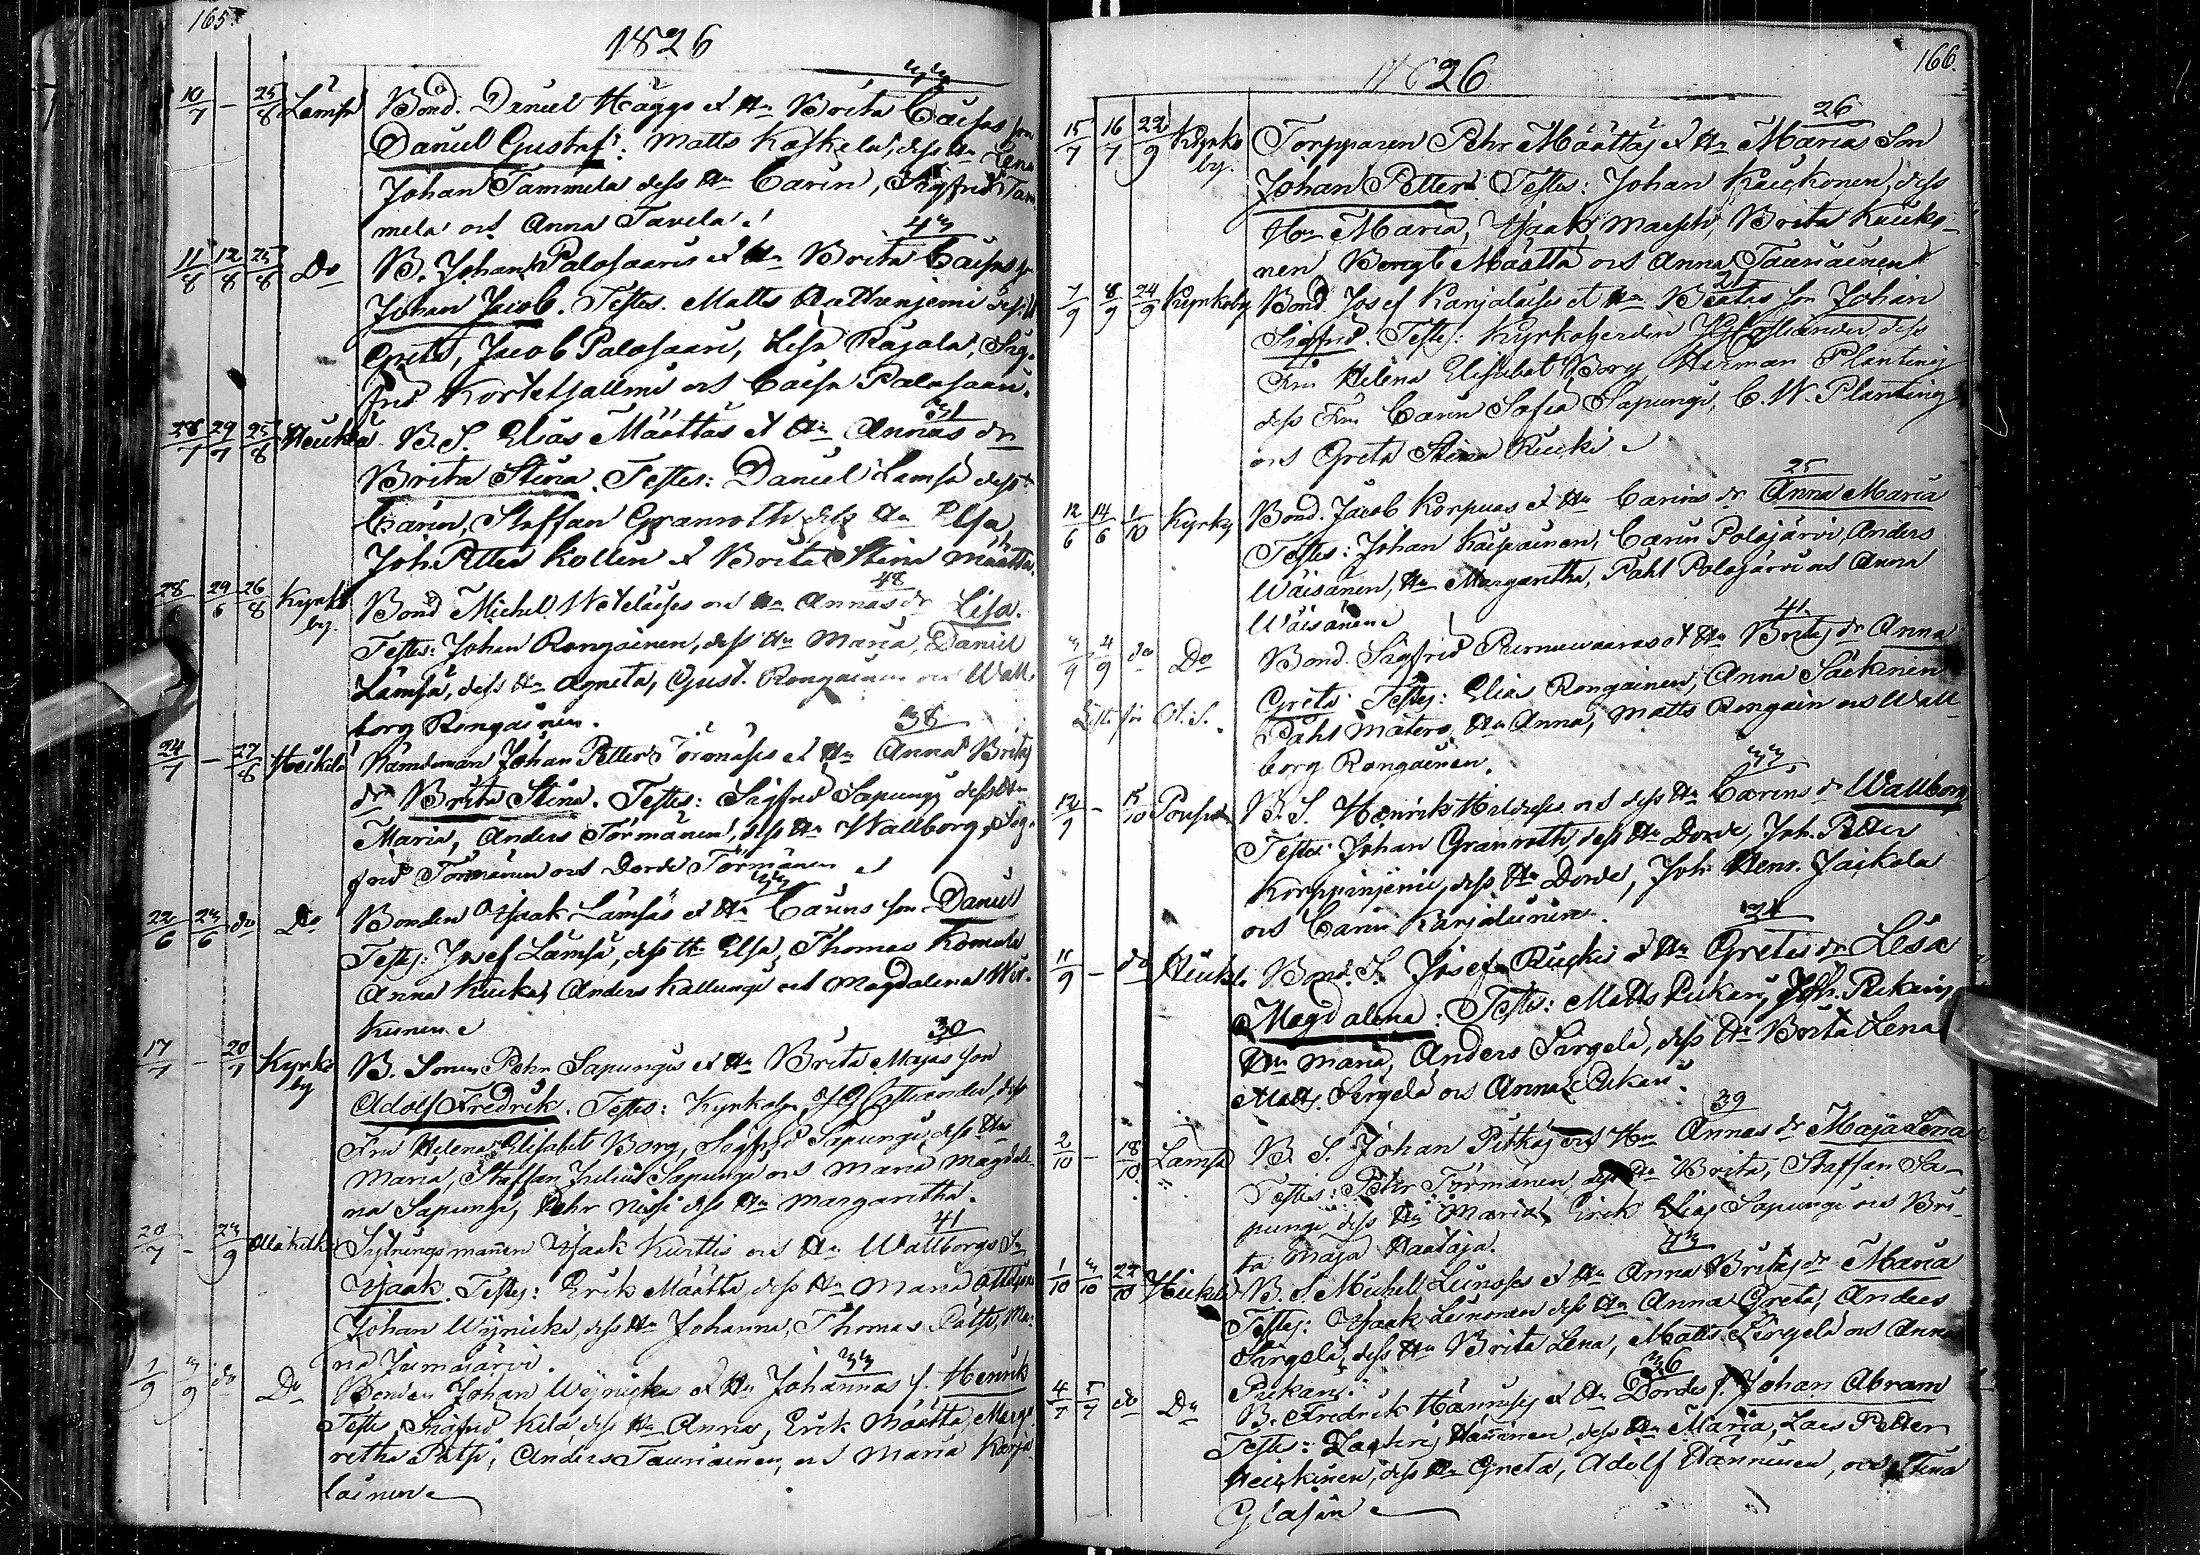 165.
1826
33
10/7 — 25/8 Lämsä Bond. Daniel Häggs et Hu Brita Caisas son
Daniel Gustaf: Matts Koskela, dess Hu Lena
Johan Tammela dess Hu Carin, Sigfrid Tam-
mela och Anna Tavela.
43
11/8 12/8 25/8 Do B. Johan Palosaaris et Hu Brita Caisas s.
Johan Jacob. Testes. Matts dess H
Greta, Jacob Palosaari, Lisa Rajala, Sig-
frid Kortetsallmi och Caisa Palosaari.
31
28/7 29/7 25/8 B. S. Elias Määttas et Hu Annas dr
Brita Stina. Testes: Daniel Lamsa dess H
Carin, Staffan Granroth dess Hu Elsa,
Joh. Petter Kollen et Brita Stina Määtta.
48
28/6 29/6 26/8 Kyrko Bond Michel och Hu Annas dr Lisa.
by.
Testes: Johan Rongainen, dess Hu Maria, Daniel
Lämsä, dess Hu Agneta, Gust. Rongainen och Wall-
borg Rongainen.
38
24/7 — 27/8 Heikilä Johan Petter Törmäses et Hu Anna Britas
dr Brita Stina. Testes: Sigfrid Sapungi dess Hu
Maria, Anders Törmänen, dess Hu Wallborg, Sig-
frid Törmänen och Dorde Törmänen
33
22/6 23/6 do Do Bonden Isaak Lämsäs et Hu Carins son Daniel
Testes: Josef Lämsä, dess Hu Elsa, Thomas
Anna Anders Kallungi och Magdalena Wir-
kunen
30
17/7 — 20/7 Kyrko B. Sonen Pehr Sapungis et Hu Brita Majas son
by
Adolf Fredrik. Testes: Kyrkoh. dess
Fru Helena Elisabet Borg, Sigfrid Sapungi, dess Hu
Maria, Staffan Julius Sapungi och Maria Magdale-
na Sapungi, Pehr Nissi dess Hu Margaretha.
41
20/7 — 23/9 Sytningsmannen Isaak Kurttis och Hu Wallborgs S.
Isaak. Testes: Erik Määtta dess Hu Maria
Johan Wÿnicka, dess Hu Johanna, Thomas Pätsi, Ma-
ria Jumajärvi.
33
1/9 3/9 do Do Bonden Johan Wÿnickas et Hu Johannas s. Henrik
Testes Sigfrid Kilä dess Hu Anna, Erik Määtta, Marga-
retha Pätsi, Anders Tauriainen, och Maria Karja-
lainen
166.
1826
26
15/7 16/7 22/9 Kyrko Torpparen Pehr Määttäs et Hu Marias Son
by.
Johan Petter. Testes: Johan Kaukonen, dess
Hu Maria, Isaak Brita Kauko-
nen Bengt Määtta och Anna Tauriainen
21
7/9 8/9 24/9 Kyrkoby Bond. Josef Karjalaises et Hu Beatas son Johan
Sigfrid. Testes: Kyrkoherden dess
Fru Helena Elisabet Borg Herman Planting
dess Fru Carin Sofia Sapungi, C. W. Planting
och Greta Stina Rucki
25
12/6 14/6 1/10 Kyrkby Bond. Jacob Korpuas et Hu Carins dr Anna Maria
Testes: Johan Kaipainen, Carin Polojärvi, Anders
Wäisänen, Hu Margaretha, Påhl Polojärvi och Anna
Wäisänen
41.
3/9 4/9 do Do Bond. Sigfrid Purnuvaaras et Hu Britas dr Anna
Greta. Testes: Elias Rongainen, Anna Säckinen
Påhl Matero, Hu Anna, Matts Rongain och Wall-
borg Rongainen.
33
12/9 — 15/10 B. S. Henrik och dess Hu Carins dr Wallborg
Testes: Johan Granroth, dess Hu Dorde, Joh. Petter
Korppinjemi, dess Hu Dorde, Joh. Henr. Jaikola
och Carin Karjalainen.
24
11/9 — do Heikil. Bond. S. Josef Ruckis et Hu Gretas dr Lisa
Magdalena: Testes: Matts Pukari, Joh. Pukari
Hu Maria, Anders Sirgelä, dess Hu Brita Lena
Matts Sirgelä och Anna Pukari.
39
2/10 — 18/10 Lämsä B. S. Johan Pitkäs och Hu Annas dr Maja Lena
Testes: Pehr Törmänen dess Hu Brita, Staffan Sa-
pungi dess Hu Maria Erik Elias Sapungi och Bri-
ta Maja Haataja.
43
1/10 3/10 22/10 Heikilä B. S Michel Leinoses et Hu Anna Britas dr Maria
Testes: Isaak Leinonen dess Hu Anna Greta, Anders
Sirgelä, dess Hu Brita Lena, Matts Sirgelä och Anna
Pukari.
36
4/7 5/7 do Do B. Fredrik Hännises et Hu Dordes s. Johan Abram
Testes: Zachris Hänninen, dess Hu Maria, Lars Petter
Heickinen, dess Hu Greta, Adolf Hänninen, och Stina
Glasin